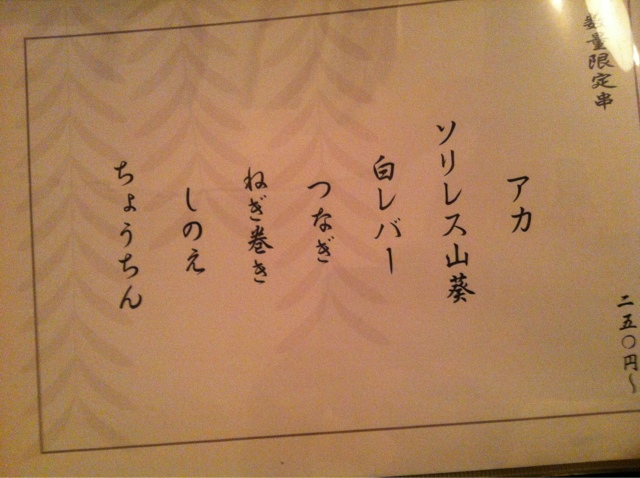 数量限定串
二五〇円〜
アカ
ソリレス山葵
白レバー
つなぎ
ねぎ巻き
しのえ
ちょうちん